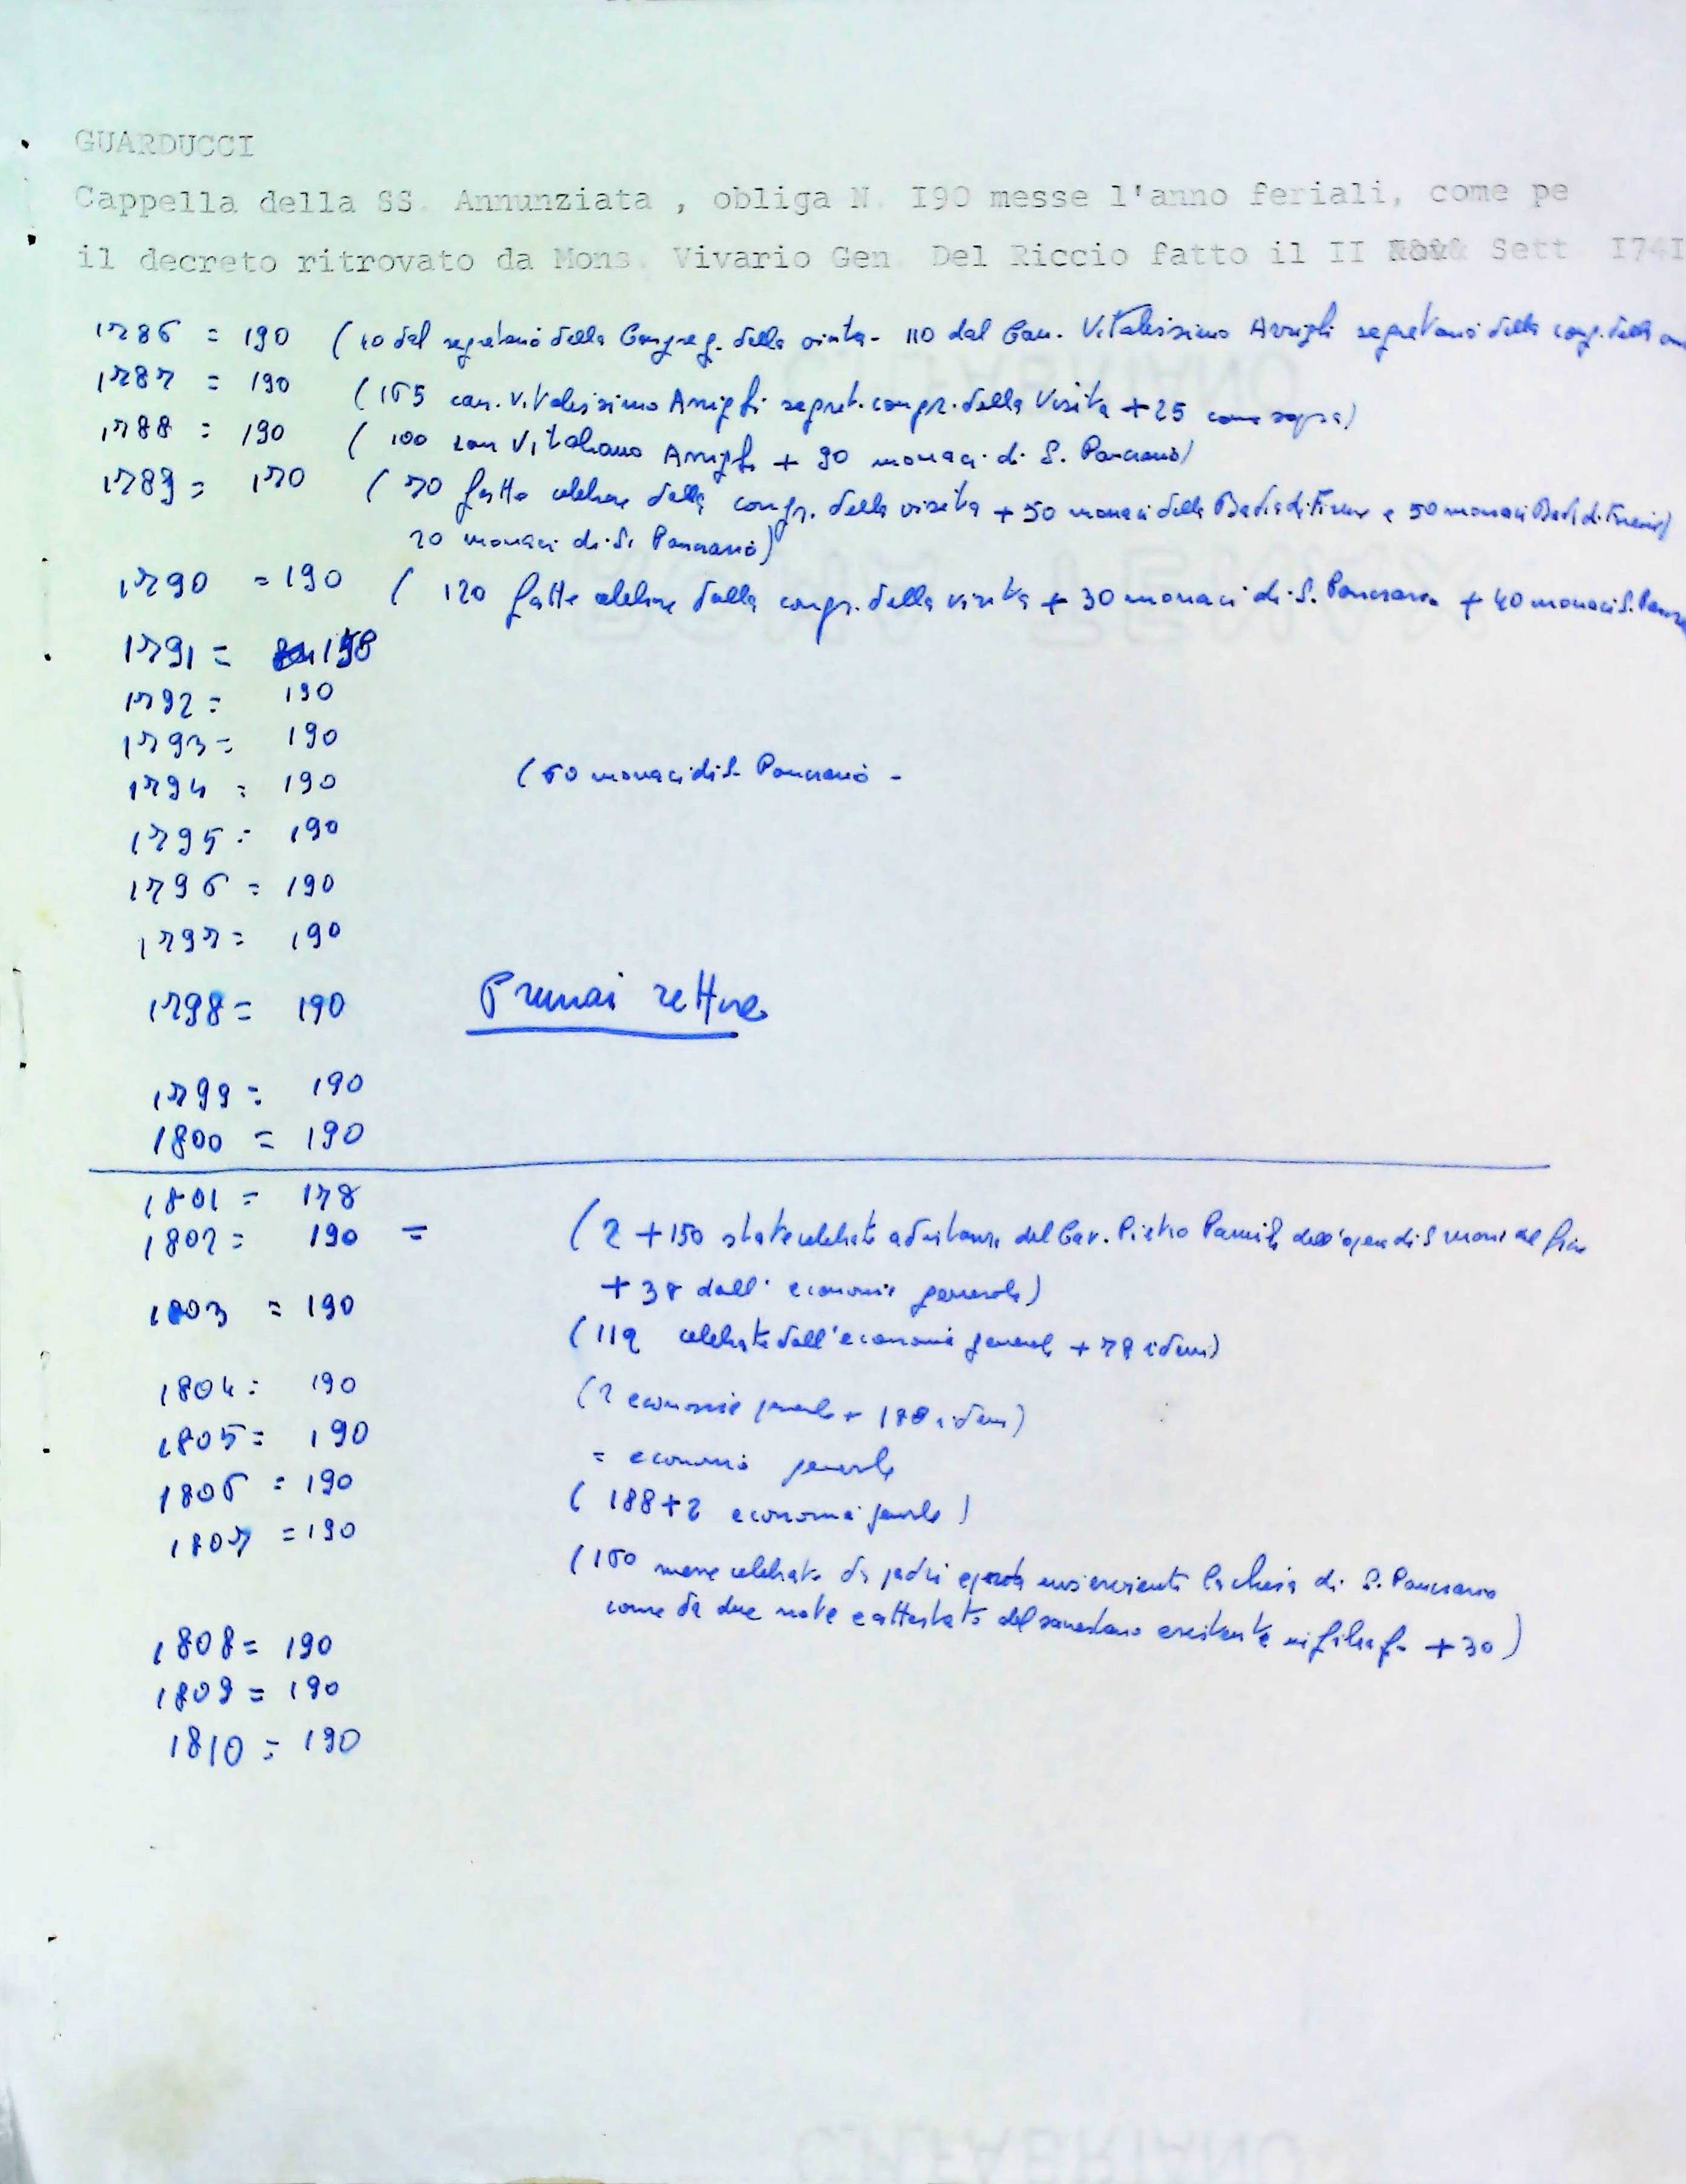 GUARDUCCI
Cappella della SS. Annunziata , obliga N. I90 messe l'anno feriali, come pe
il decreto ritrovato da Mons. Vivario Gen. Del Riccio fatto il II Sett. I74I
1786 = 190 ( dal segretario della Congreg. della visita - 110 dal Can. Vitalissimo Arrighi segretario della cong. della
1787 = 190 (165 can. Vitalissimo Arrighi segret. congr. della Visita + 25 come sopra)
1788 = 190 (100 can Vitaliano Arrighi + 90 monaci di S. Pancrazio)
1789 = 170 (70 fatte celebrare dalla congr. della visita + 50 monaci della Badia di Firenze e 50 monaci Badia di Firenze)
20 monaci di S. Pancrazio)
1790 = 190 (120 fatte celebrare dalla congr. della visita + 30 monaci di S. Pancrazio + 40 monaci S.
1791 =
1792 = 190
1793 = 190
1794 = 190 (60 monaci di S. Pancrazio -
1795 = 190
1796 = 190
1797 = 190
1798 = 190 Prunai rettore
1799 = 190
1800 = 190
1801 = 178
1802 = 190 = (2 + 150 state celebrate ad istanza del Cav. Pietro dell'opera di S
+ 38 dall' economia generale)
1803 = 190 (112 celebrate dall'economia generale + 78 idem)
1804 = 190 (2 economia generale + 188 idem)
1805 = 190 = economia generale
1806 = 190 (188+2 economia generale)
1807 = 190 (160 messe celebrate da padri la chiesa di S. Pancrazio
come da due note e attestato del sacrestano esistente in filza + 30)
1808 = 190
1809 = 190
1810 = 190
C.M.FABRIANO